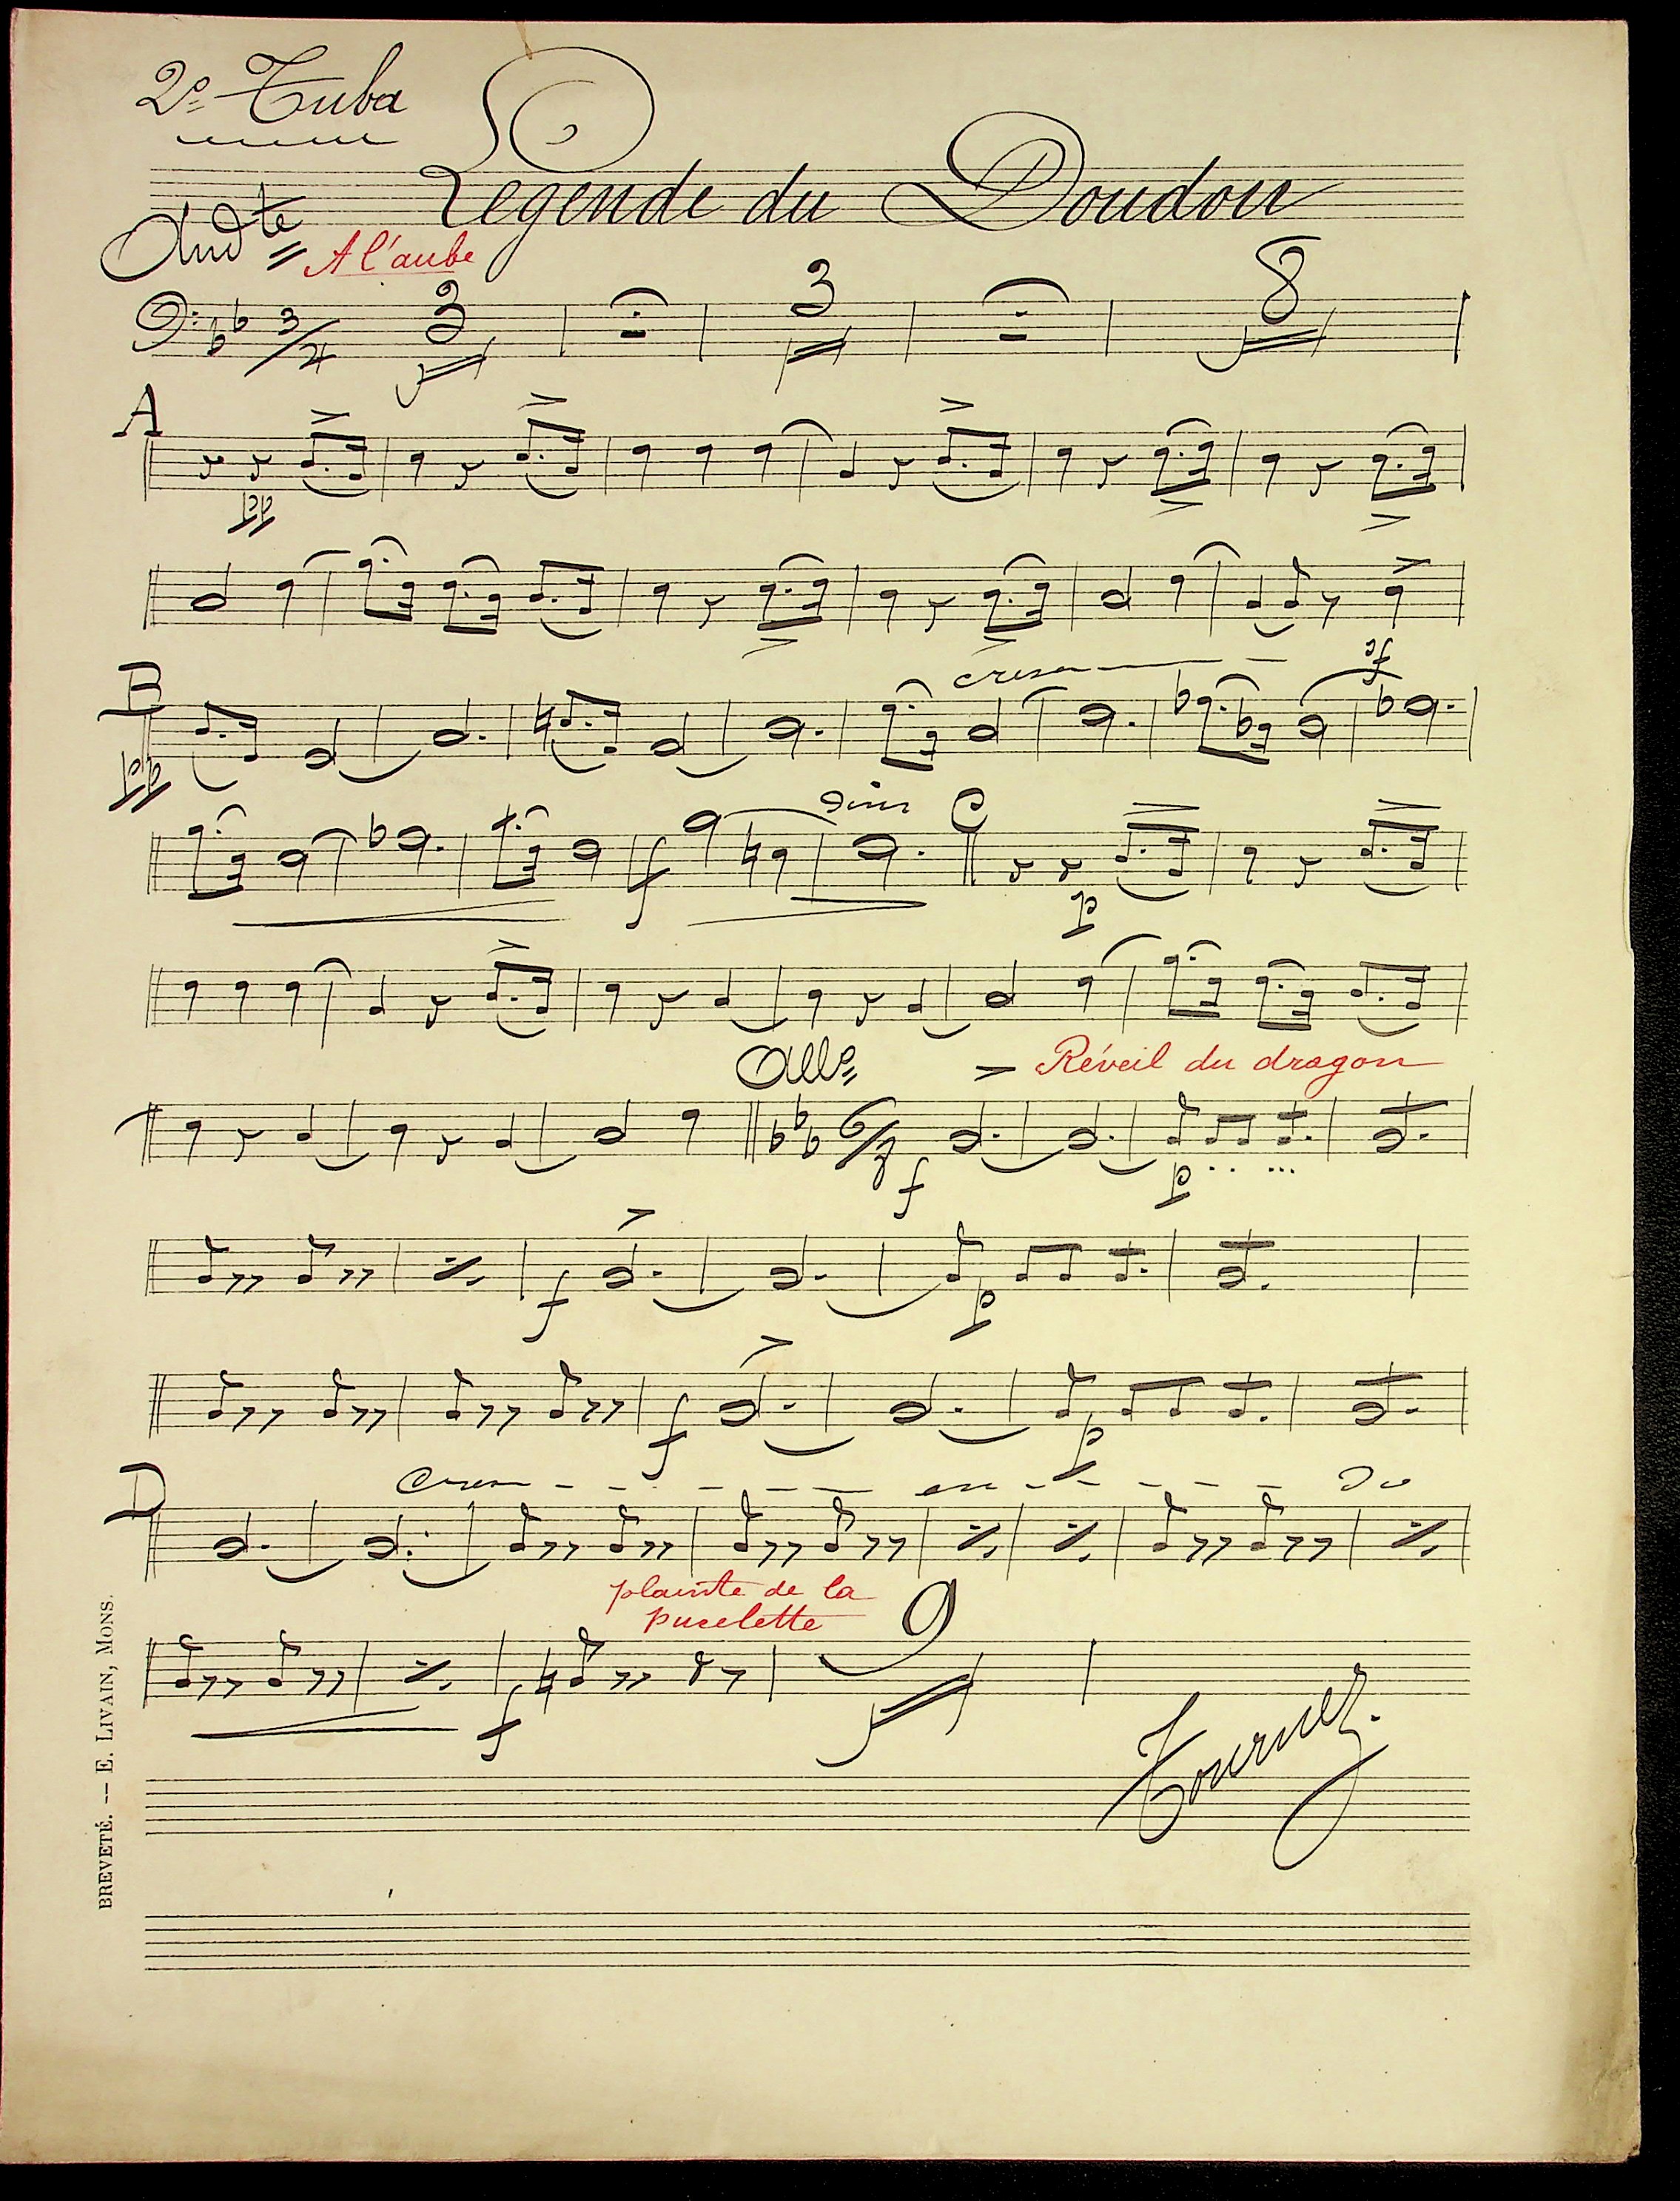 2º Tuba
Legende du Doudou
Andte
A l'aube
3/4 3 3 8
A
pp
cresc
sf
B
pp
dim C
f
p
Allº
> Réveil du dragon
6/8
f p
f p
f p
Cres - - - - - - cen - - - - - do
D
plainte de la
pucelette
9
f
Tournez.
BREVETÉ. -- E. LIVAIN, MONS.